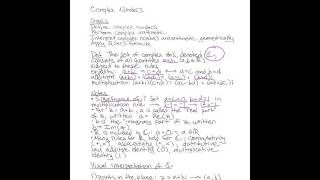 Complex Numbers
Goals
Define complex numbers
Perform complex arithmetic
Interpret complex numbers and arithmetic geometrically
Apply Euler's formula
Def The set of complex #s, denoted ℂ,
consists of all quantities a+bi (a,b∈ℝ)
subject to these rules
equality: a+bi = c+di ⟺ a=c and b=d
addition:
multiplication: (a+bi)(c+di) = (ac-bd) + (ad+bc)i
Notes
multiplication rule
For z = a+bi, a is called the "real part" of
z, written a = Re(z)
b is the "imaginary part" of z, written
b = Im(z)
ℝ is included in ℂ: a+0i = a ∈ ℝ
Many rules for ℝ hold for ℂ: commutativity
(+,×), associativity (+,×), distributivity
and additive identity (0), multiplicative
identity (1)
Visual interpretation of ℂ
1) points in the plane: z = a+bi → (a,b)